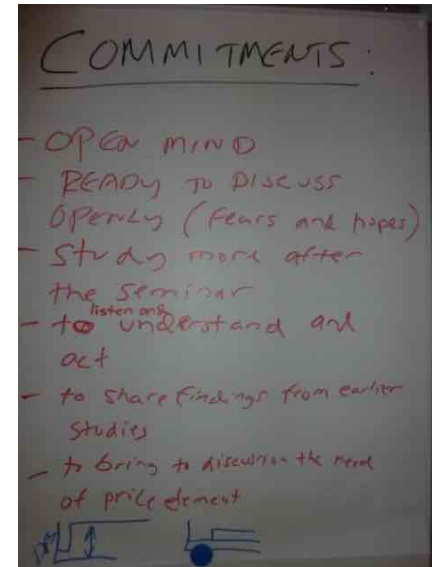 COMMITMENTS:
- OPEN MIND
- READY TO DISCUSS
OPENLY (fears and hopes)
- Study more after
the seminar
listen and
- to understand and
act
- to share findings from earlier
studies
- to bring to discussion the need
of price element